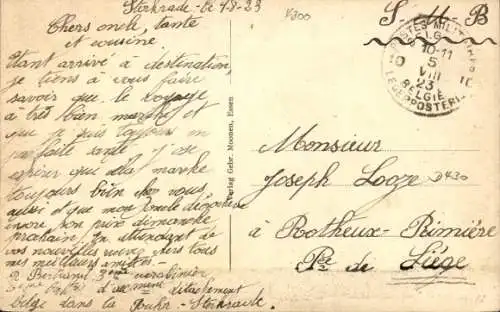 Sterkrade - le 4-8-23
Chers oncle, tante
et cousine.
Etant arrivé à destination,
je tiens à vous faire
savoir que le voyage
à très bien marché et
que je suis toujours en
parfaite santé. j'ose
espérer que cela marche
toujours bien chez vous
aussi et que mon oncle
encore son prix dimanche
prochain. En attendant de
vos nouvelles recevez tous
mes meilleurs amitiés
Bertrand 3ème carabinier
détachement
belge dans la Ruhr - Sterkrade.
Verlag Gebr. Moonen, Essen
V300
S. M. B
POSTES MILITAIRES
BELG
10-11
5
VIII
23
BELGIE
LEGERPOSTERIJ
10
10
Monsieur
Joseph Looze
D430
à Rotheux-Rimière
Pce de Liége